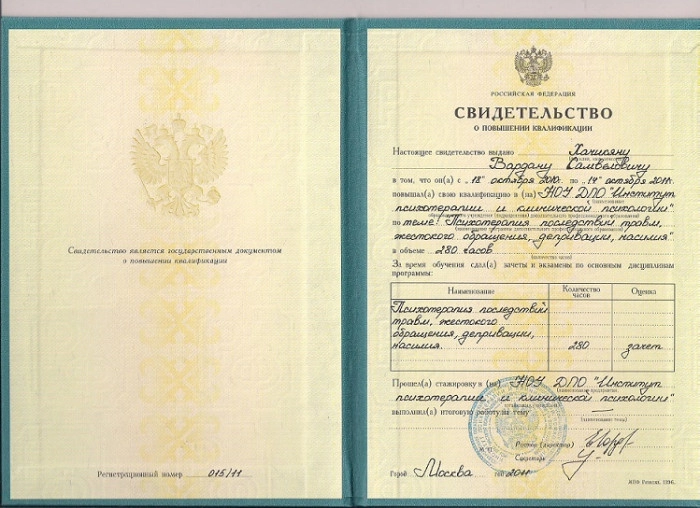 Свидетельство является государственным документом
о повышении квалификации
Регистрационный номер 015/11
РОССИЙСКАЯ ФЕДЕРАЦИЯ
СВИДЕТЕЛЬСТВО
О ПОВЫШЕНИИ КВАЛИФИКАЦИИ
Настоящее свидетельство выдано Хачикяну
Вардану Самвеловичу
в том, что он(а) с „18" октября 2010г. по „14" октября 2011г.
повышал(а) свою квалификацию в (на) НОУ ДПО "Институт
психотерапии и клинической психологии"
по теме: "Психотерапия последствий травм,
жестокого обращения, депривации, насилия"
в объеме 280 часов
(количество часов)
За время обучения сдал(а) зачеты и экзамены по основным дисциплинам
программы:
Наименование Количество часов Оценка
Психотерапия последствий
травм, жестокого
обращения, депривации,
насилия. 280 зачет
Прошел(а) стажировку в (на) НОУ ДПО "Институт
психотерапии и клинической психологии"
выполнил(а) итоговую работу на тему —
Ректор (директор)
Секретарь
Город Москва год 2011